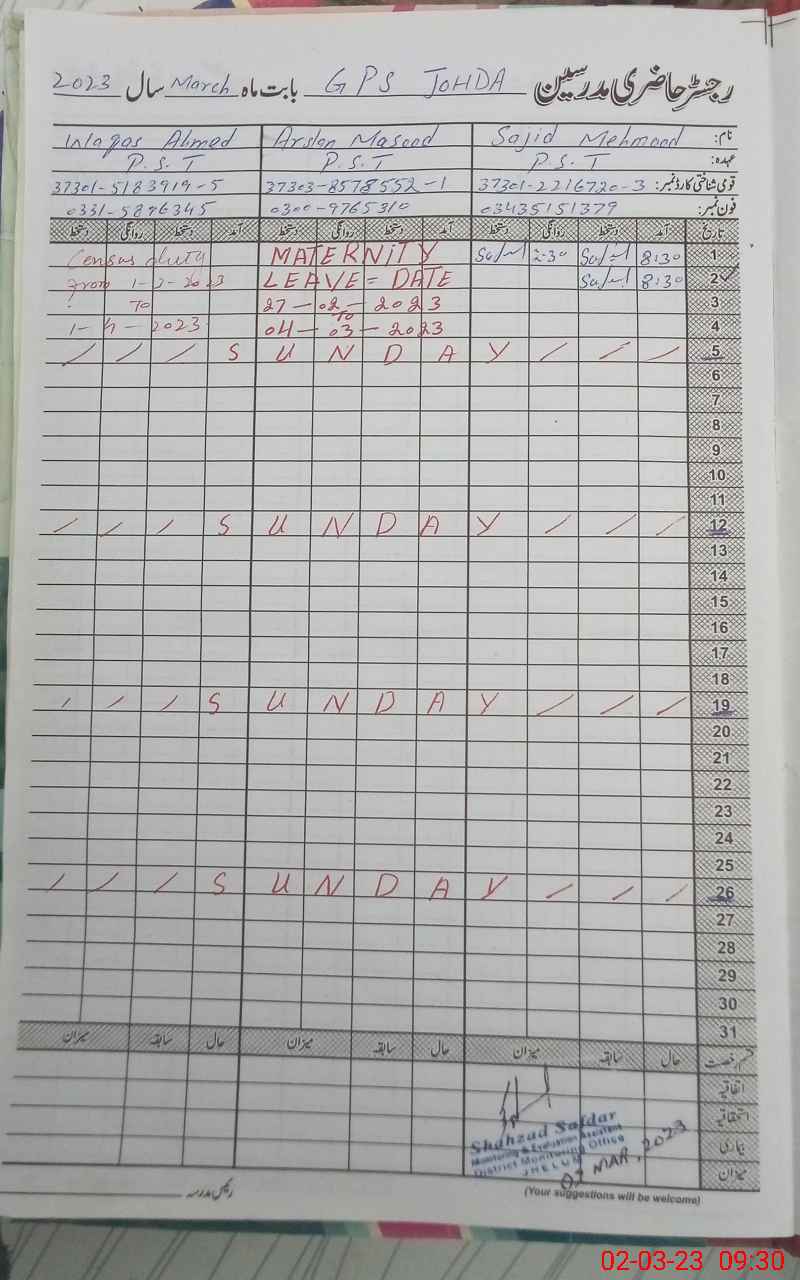 رجسٹر حاضری مدرسین GPS JOHDA بابت ماہ March سال 2023
نام: Sajid Mehmood Arslan Masood Waqas Ahmed
عہدہ: P.S.T P.S.T P.S.T
قومی شناختی کارڈ نمبر: 37301-2216720-3 37303-8578552-1 37301-5183919-5
فون نمبر: 03435151379 0300-9765310 0331-5896345
تاریخ آمد دستخط روانگی دستخط آمد دستخط روانگی دستخط آمد دستخط روانگی دستخط
1 8:30 2:30 MATERNITY Census duty
2 8:30 LEAVE = DATE From 1-3-2023
3 27-02-2023 To
4 To 04-03-2023 1-4-2023
5 S U N D A Y
6
7
8
9
10
11
12 S U N D A Y
13
14
15
16
17
18
19 S U N D A Y
20
21
22
23
24
25
26 S U N D A Y
27
28
29
30
31
قسم رخصت حال سابقہ میزان حال سابقہ میزان حال سابقہ میزان
اتفاقیہ
استحقاقیہ
بیماری
میزان
Shahzad Safdar
Monitoring & Evaluation Assistant
District Monitoring Office
JHELUM
02 MAR, 2023
رئیس مدرسہ
(Your suggestions will be welcome)
02-03-23 09:30